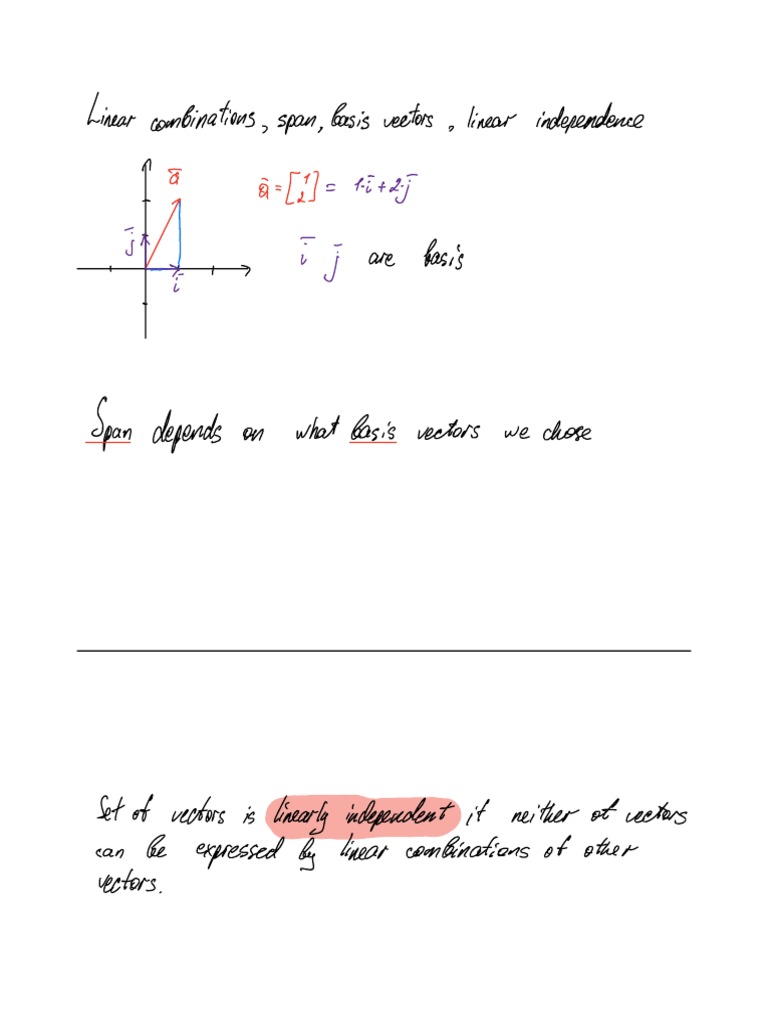 Linear combinations, span, basis vectors, linear independence
ā
ā = [1 2] = 1·ī + 2·j̄
j̄
ī j̄ are basis
ī
Span depends on what basis vectors we chose
Set of vectors is linearly independent if neither of vectors
can be expressed by linear combinations of other
vectors.